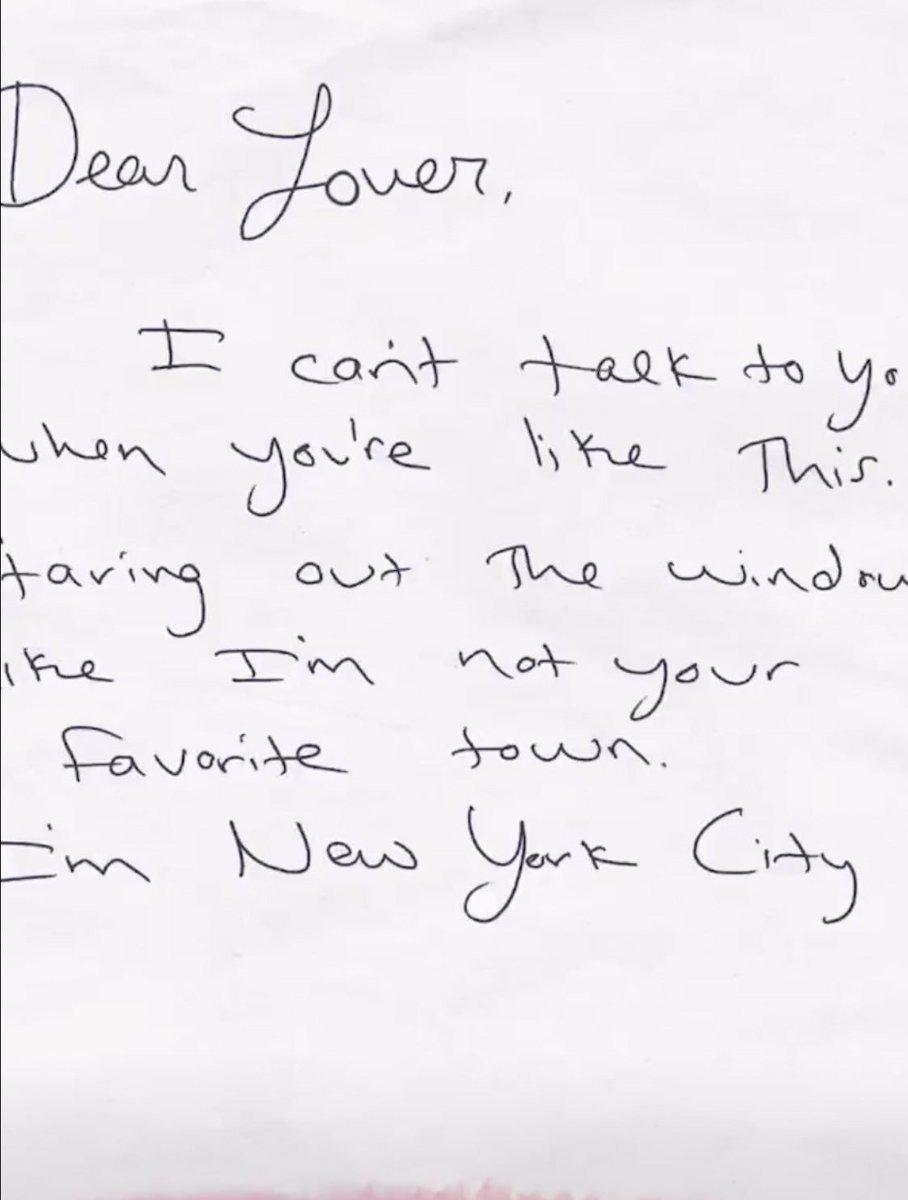 Dear Lover,
I can't talk to yo
when you're like This.
taring out The window
ike I'm not your
favorite town.
I'm New York City